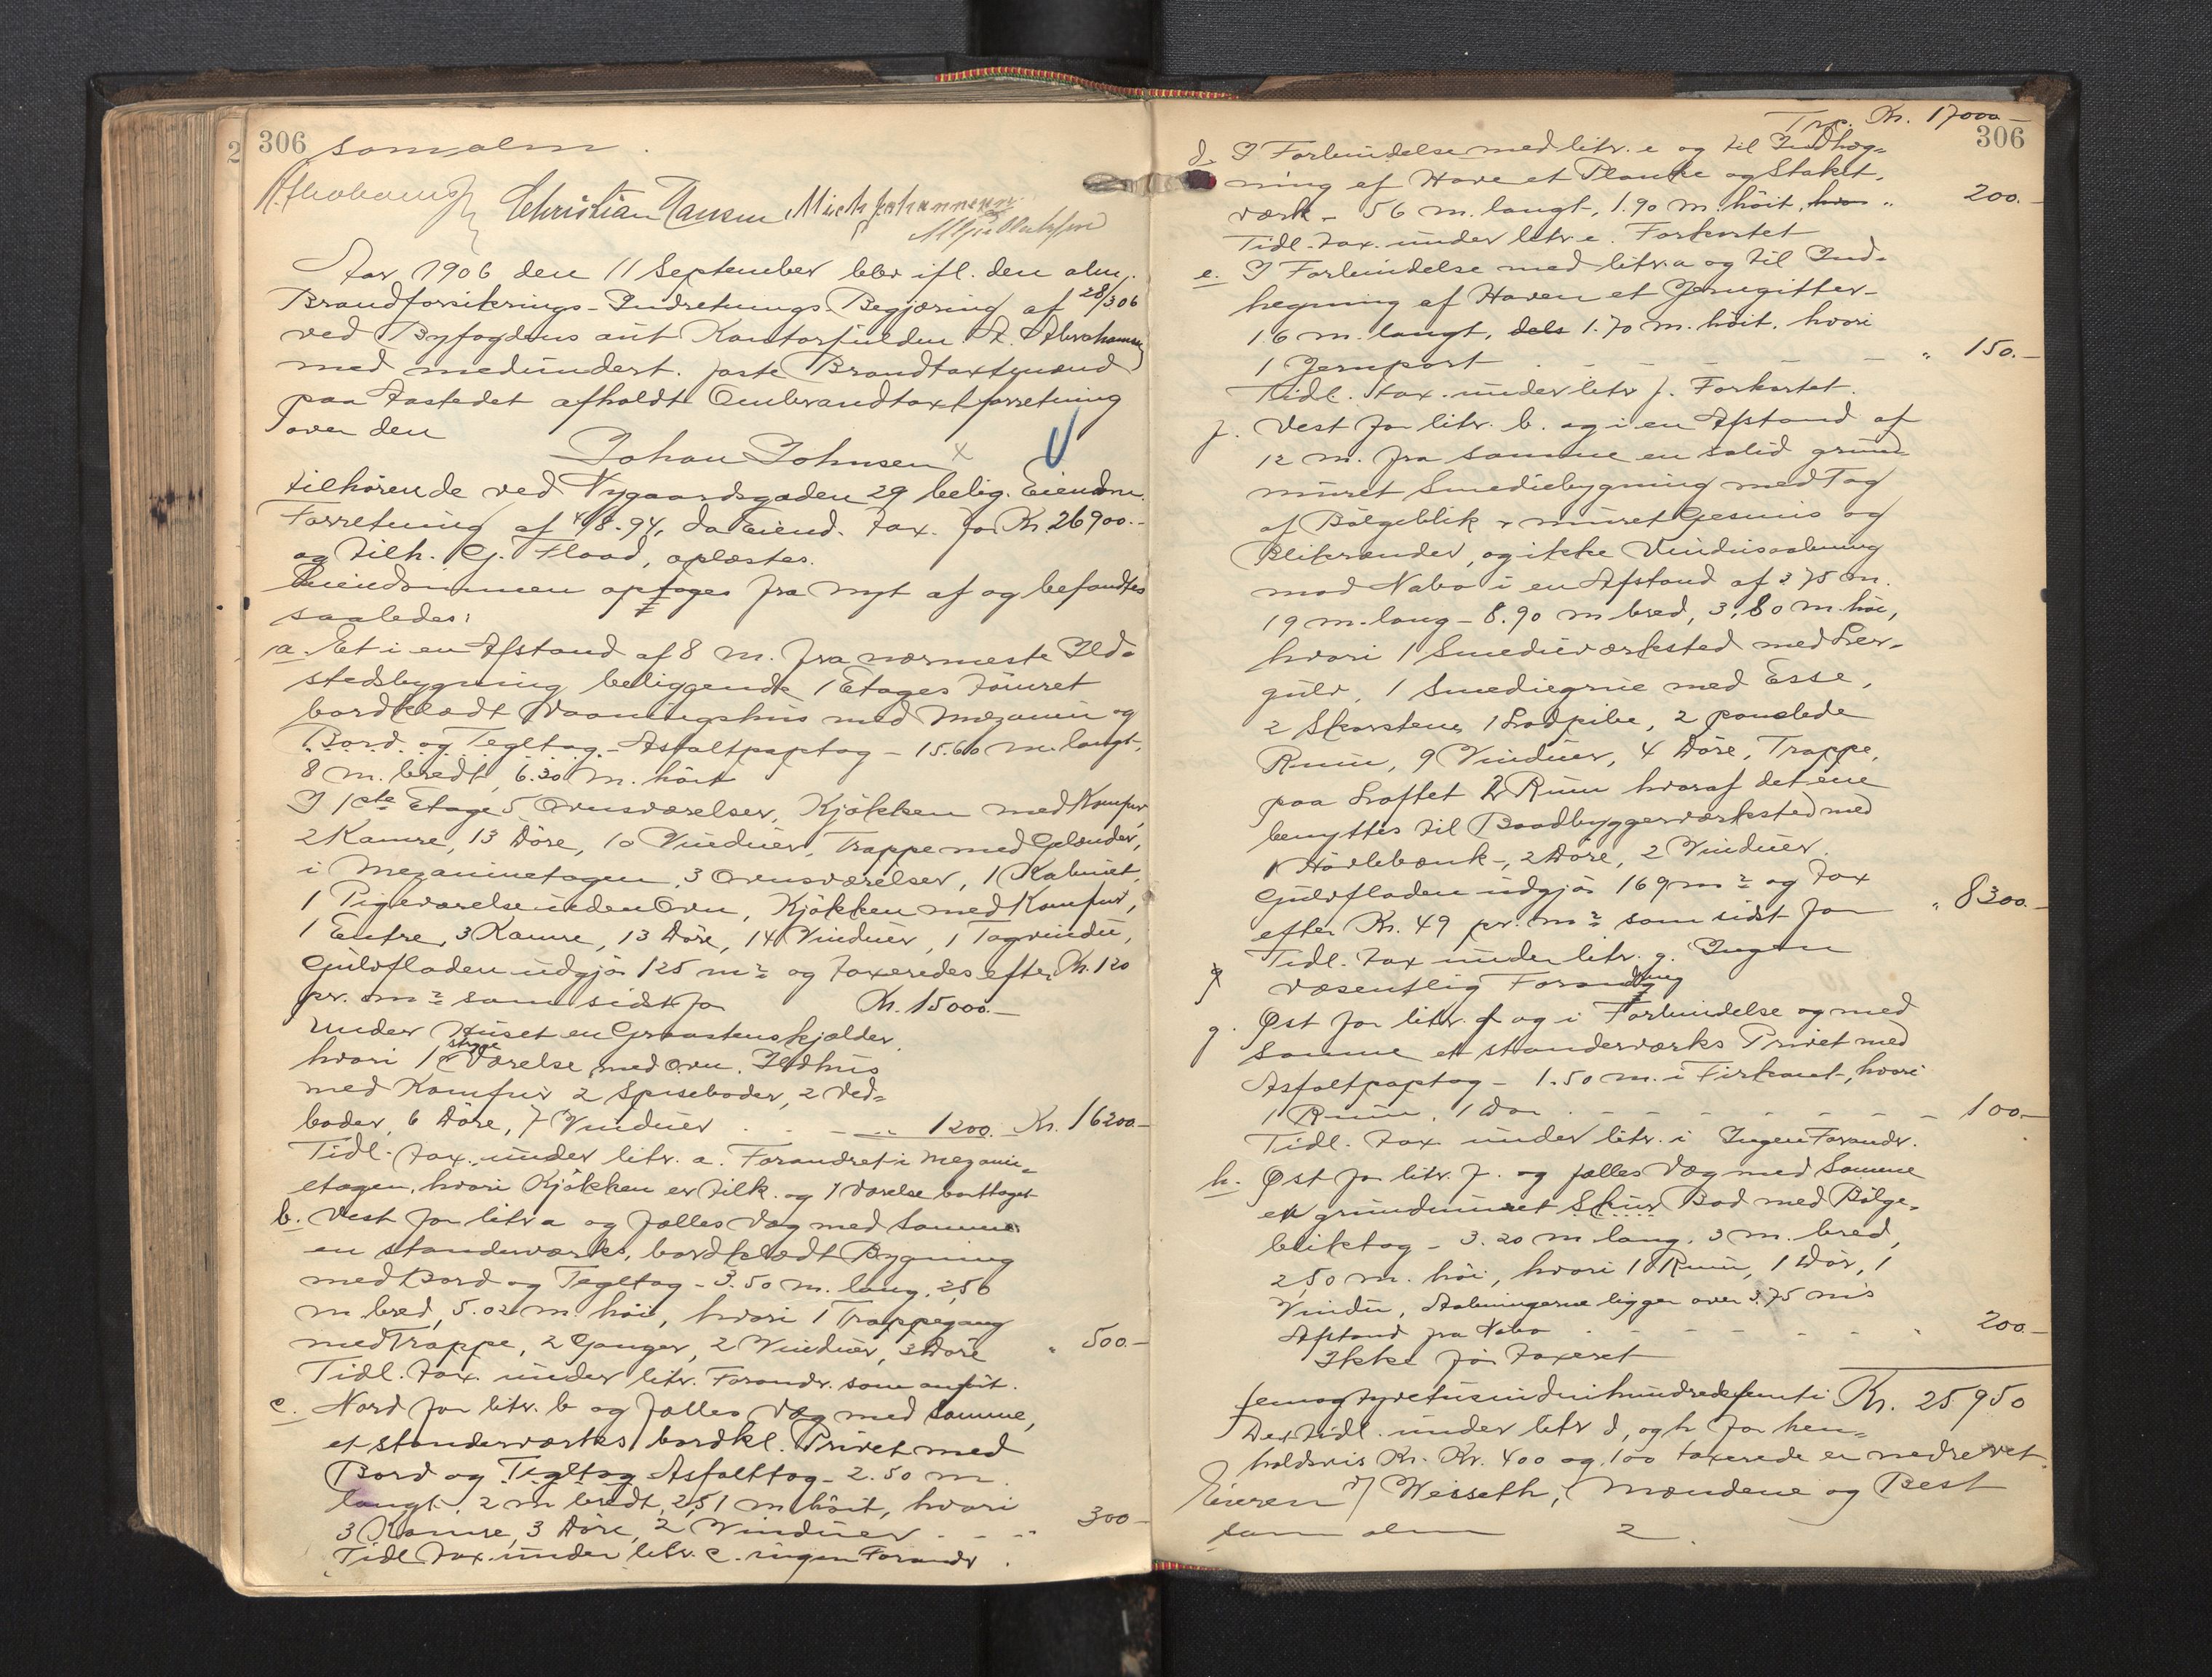 306 som alm.
Christian Hansen Mich Johannesen
Aar 1906 den 11 September blev ifl. den alm.
Brandforsikrings-Indretnings Begjæring af 28/8 06
ved Byfogdens aut Kontorfuldm. A. Abrahamsen
med medundert. faste Brandtaxtmænd
paa Aastedet afholdt Ombrandtaxtforretning
over den
Johan Johnsen x
tilhørende ved Nygaardsgaden 29 belig. Eiendom.
Forretning af 4/8-94, da Eiend. tax. for Kr. 26900.-
og tilh. G. Flood, oplæstes.
Eiendommen optoges fra nyt af og befandtes
saaledes:
a. Et i en Afstand af 8 m. fra nærmeste Ild-
stedsbygning beliggende 1 Etages tømret
bordklædt Vaaningshus med Mezanin og
Bord og Tegltag - Asfaltpaptag - 15.60 m. langt,
8 m. bredt, 6.30 m. høit
I 1ste Etage 5 Ovnsværelser, Kjøkken med Komfur,
2 Kamre, 13 Døre, 10 Vinduer, Trappe med Gelænder,
i Mezaninetagen, 3 Ovnsværelser, 1 Kabinet,
1 Pigeværelse uden Ovn, Kjøkken med Komfur,
1 Entre, 3 Kamre, 13 Døre, 14 Vinduer, 1 Tagvindu,
Gulvfladen udgjør 125 m² og taxeredes efter Kr. 120
pr. m² som sidst for Kr. 15000.-
Under Huset en Graastenskjælder,
hvori 1 stryge Værelse med Ovn. Ildhus
med Komfur 2 Spiseboder, 2 Ved-
boder, 6 Døre, 7 Vinduer . . - „ 1200.- Kr. 16200.-
Tidl. tax. under litr. a. Forandret i Mezanin-
etagen, hvori Kjøkken er tilk. og 1 Værelse borttaget
b. Vest for litr a og fælles Væg med samme
en standerværks, bordklædt Bygning
med Bord og Tegltag - 3.50 m. lang, 2,56
m bred, 5.02 m. høi, hvori 1 Trappegang
med Trappe, 2 Gange, 2 Vinduer, 3 Døre „ 500.-
Tidl. tax. under litr. Forandr. som anført.
c. Nord for litr. b og fælles Væg med samme,
et standerværks bordkl. Privet med
Bord og Tegltag Asfalttag - 2.50 m.
langt, 2 m bredt, 2,51 m høit, hvori
3 Kamre, 3 Døre, 2 Vinduer - - - 300-
Tidl tax. under litr. c. ingen Forandr.
Trp. Kr. 17000.-
306
d. I Forbindelse med litr. e og til Indhæg-
ning af Have et Planke og Stakit-
værk - 56 m. langt, 1.90 m. høit, hvo „ 200.-
Tidl. tax. under litr. e. Forkortet
e. I Forbindelse med litr. a og til Ind-
hegning af Haven et Jerngitter-
16 m. langt, dels 1.70 m. høit, hvori
1 Jernport - - - - - „ 150.-
Tidl. tax. under litr f. Forkortet.
f. Vest for litr. b. og i en Afstand af
12 m. fra samme en solid grund-
muret Smediebygning med Tag
af Bølgeblik & muret Gesims og
Blikrander, og ikke Vinduisaabning
mod Nabo i en Afstand af 3.75 m.
19 m. lang - 8.90 m bred, 3,80 m. høi,
hvori 1 Smedieværksted med Ler-
gulv, 1 Smediegrue med Esse,
2 Skorstene, 1 Lodpibe, 2 panelede
Rum, 9 Vinduer, 4 Døre, Trappe,
paa Loftet 2 Rum hvoraf det ene
benyttes til Baadbyggerværksted med
1 Høvlebænk, 2 Døre, 2 Vinduer.
Gulvfladen udgjør 169 m² og tax
efter Kr. 49 pr. m² som sidst for „ 8300.-
Tidl. tax under litr. g. Ingen
væsentlig Forandring
g. Øst for litr. f og i Forbindelse og med
samme et standerværks Privet med
Asfaltpaptag - 1.50 m. i Firkant, hvori
1 Rum, 1 Dør - - - - - - - 100.-
Tidl. tax under litr. i Ingen Forandr.
h. Øst for litr. f. og fælles Væg med samme
en grundmuret Skur Bod med Bølge-
bliktag - 3.20 m lang, 3 m. bred,
2,50 m. høi, hvori 1 Rum, 1 Dør, 1
Vindu, Aabningerne ligger over 3.75 m's
Afstand fra Nabo - - - - - „ 200.-
Ikke før taxeret
femogtyvetusindnihundredefemti Kr. 25950
De tidl. under litr d, og h for hen-
holdsvis Kr. Kr. 400 og 100 taxerede er nedrevet.
Eieren v/ Wesseth, Mændene og Best
som alm 2.